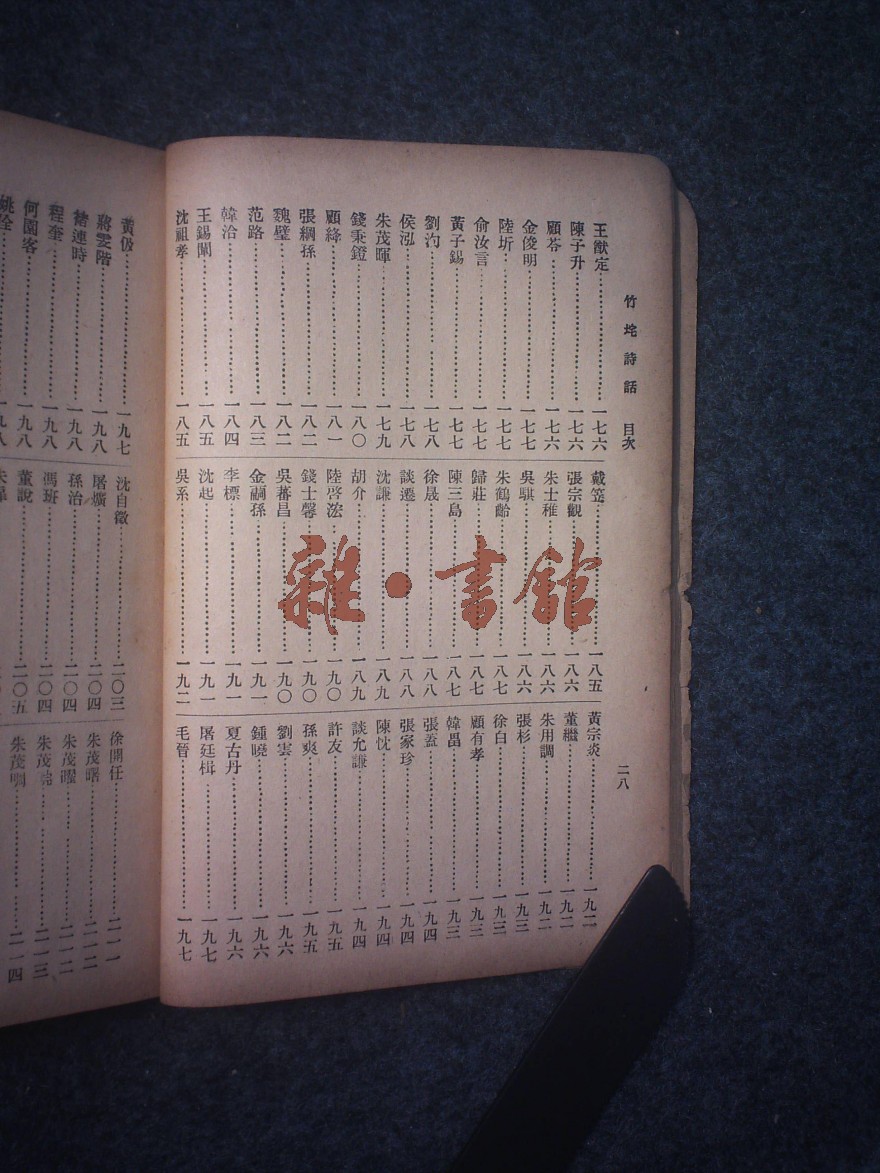 竹垞詩話 目次 二八
王猷定…一七六
陳子升…一七六
顧苓…一七六
金俊明…一七七
陸圻…一七七
俞汝言…一七七
黃子錫…一七七
劉汋…一七八
侯泓…一七八
朱茂暉…一七九
錢秉鐙…一八〇
顧絳…一八一
張綱孫…一八二
魏璧…一八二
范路…一八三
韓洽…一八四
王錫闡…一八五
沈祖孝…一八五
戴笠…一八五
張宗觀…一八六
朱士稚…一八六
吳騏…一八六
朱鶴齡…一八七
歸莊…一八七
陳三島…一八七
徐晟…一八八
談遷…一八八
沈謙…一八九
胡介…一八九
陸啓浤…一九〇
錢士馨…一九〇
吳蕃昌…一九〇
金嗣孫…一九一
李標…一九一
沈起…一九一
吳系…一九二
黃宗炎…一九二
董繼…一九二
朱用調…一九二
張杉…一九三
徐白…一九三
顧有孝…一九三
韓昌…一九三
張蓋…一九四
張家珍…一九四
陳忱…一九四
談允謙…一九四
許友…一九五
孫爽…一九五
劉雲…一九六
鍾曉…一九六
夏古丹…一九六
屠廷楫…一九七
毛晉…一九七
黃伋…一九七
蔣雲階…一九八
褚連時…一九八
程奎…一九八
何園客…一九八
姚佺…一九八
沈自徵…二〇三
屠爌…二〇四
孫治…二〇四
馮班…二〇四
董說…二〇五
徐開任…二一一
朱茂曙…二一二
朱茂曜…二一二
朱茂晥…二一三
朱茂晭…二一四
雜·書館